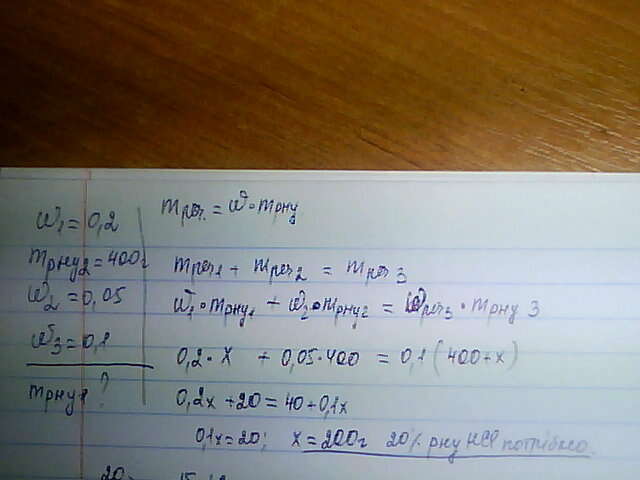 ω₁ = 0,2
mрну₂ = 400г
ω₂ = 0,05
ω₃ = 0,1
mрну₁ ?
mреч. = ω · mрну
mреч₁ + mреч₂ = mреч₃
ω₁ · mрну₁ + ω₂ · mрну₂ = ωреч₃ · mрну 3
0,2 · x + 0,05 · 400 = 0,1 (400 + x)
0,2x + 20 = 40 + 0,1x
0,1x = 20; x = 200г 20% рну HCl потрібно.
20